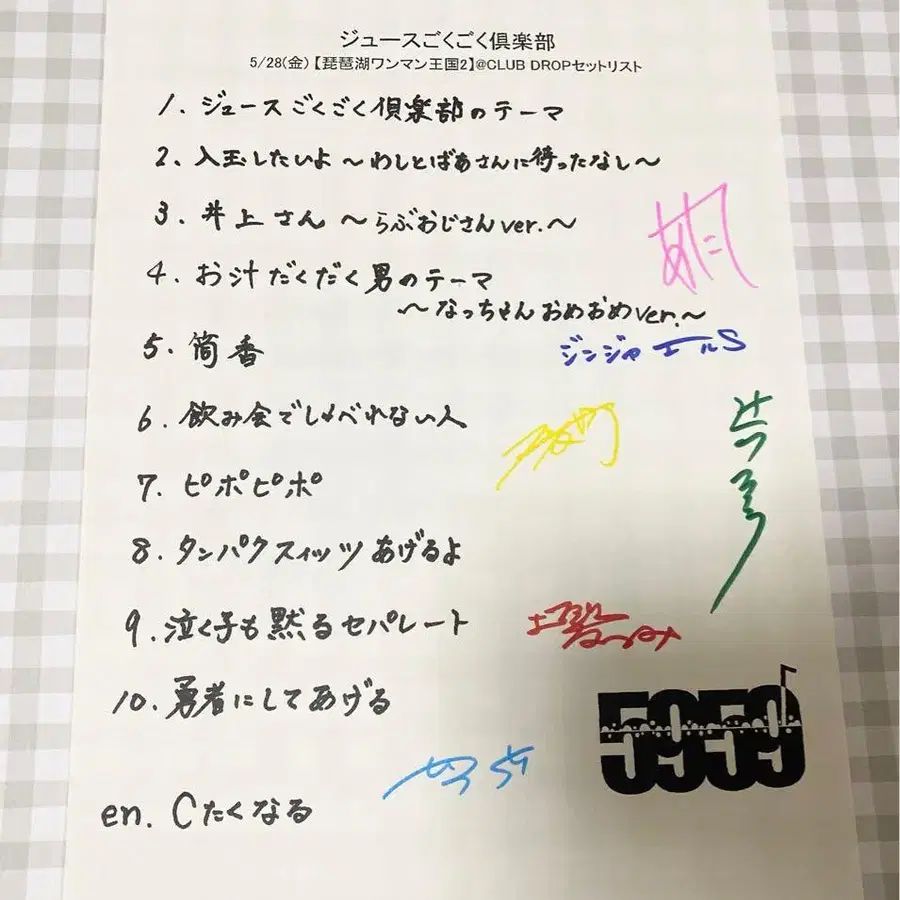 ジュースごくごく倶楽部
5/28(金)【琵琶湖ワンマン王国2】@CLUB DROPセットリスト
1. ジュースごくごく倶楽部のテーマ
2. 入玉したいよ 〜わしとばあさんに待ったなし〜
3. 井上さん 〜らぶおじさんver.〜
4. お汁だくだく男のテーマ
〜なっちゃんおめおめver.〜
ジンジャエールS
5. 筒香
6. 飲み会でしゃべれない人
7. ピポピポ
8. タンパクスィッツあげるよ
9. 泣く子も黙るセパレート
10. 勇者にしてあげる
5959
en. Cたくなる